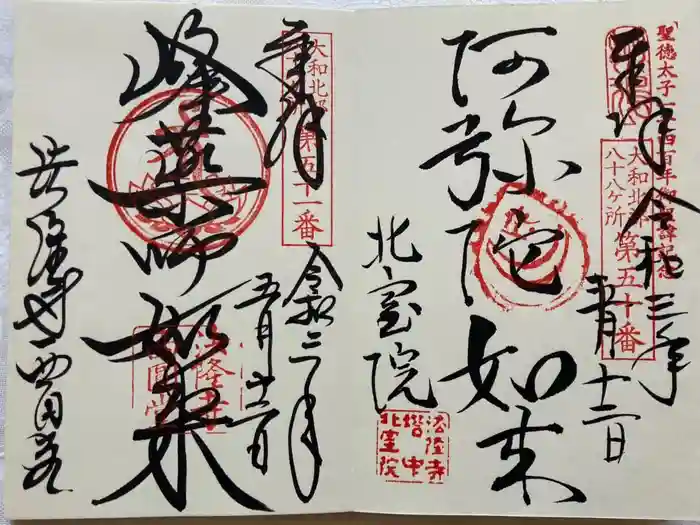 奉拝
聖徳太子一千四百年御遠忌記念
大和北部
八十八ヶ所
第五十番
令和三年
五月十二日
阿弥陀如来
北室院
法隆寺
塔中
北室院
奉拝
大和北部
第五十一番
令和三年
五月十二日
峰薬師如来
法隆寺
西円堂
法隆寺西円堂